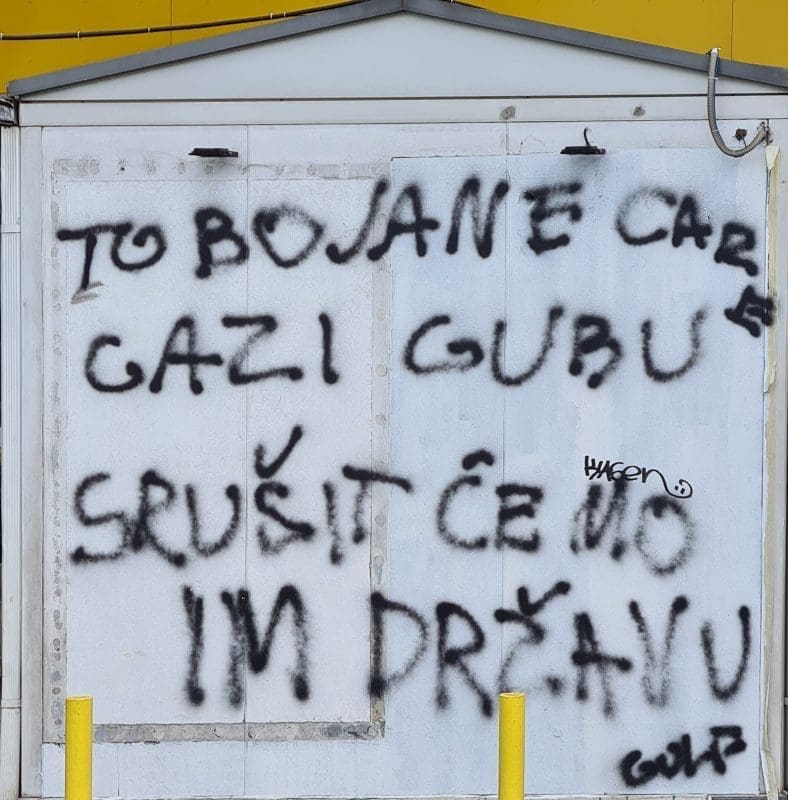 TO BOJANE CARE
GAZI GUBU
SRUŠIT ĆEMO
IM DRŽAVU